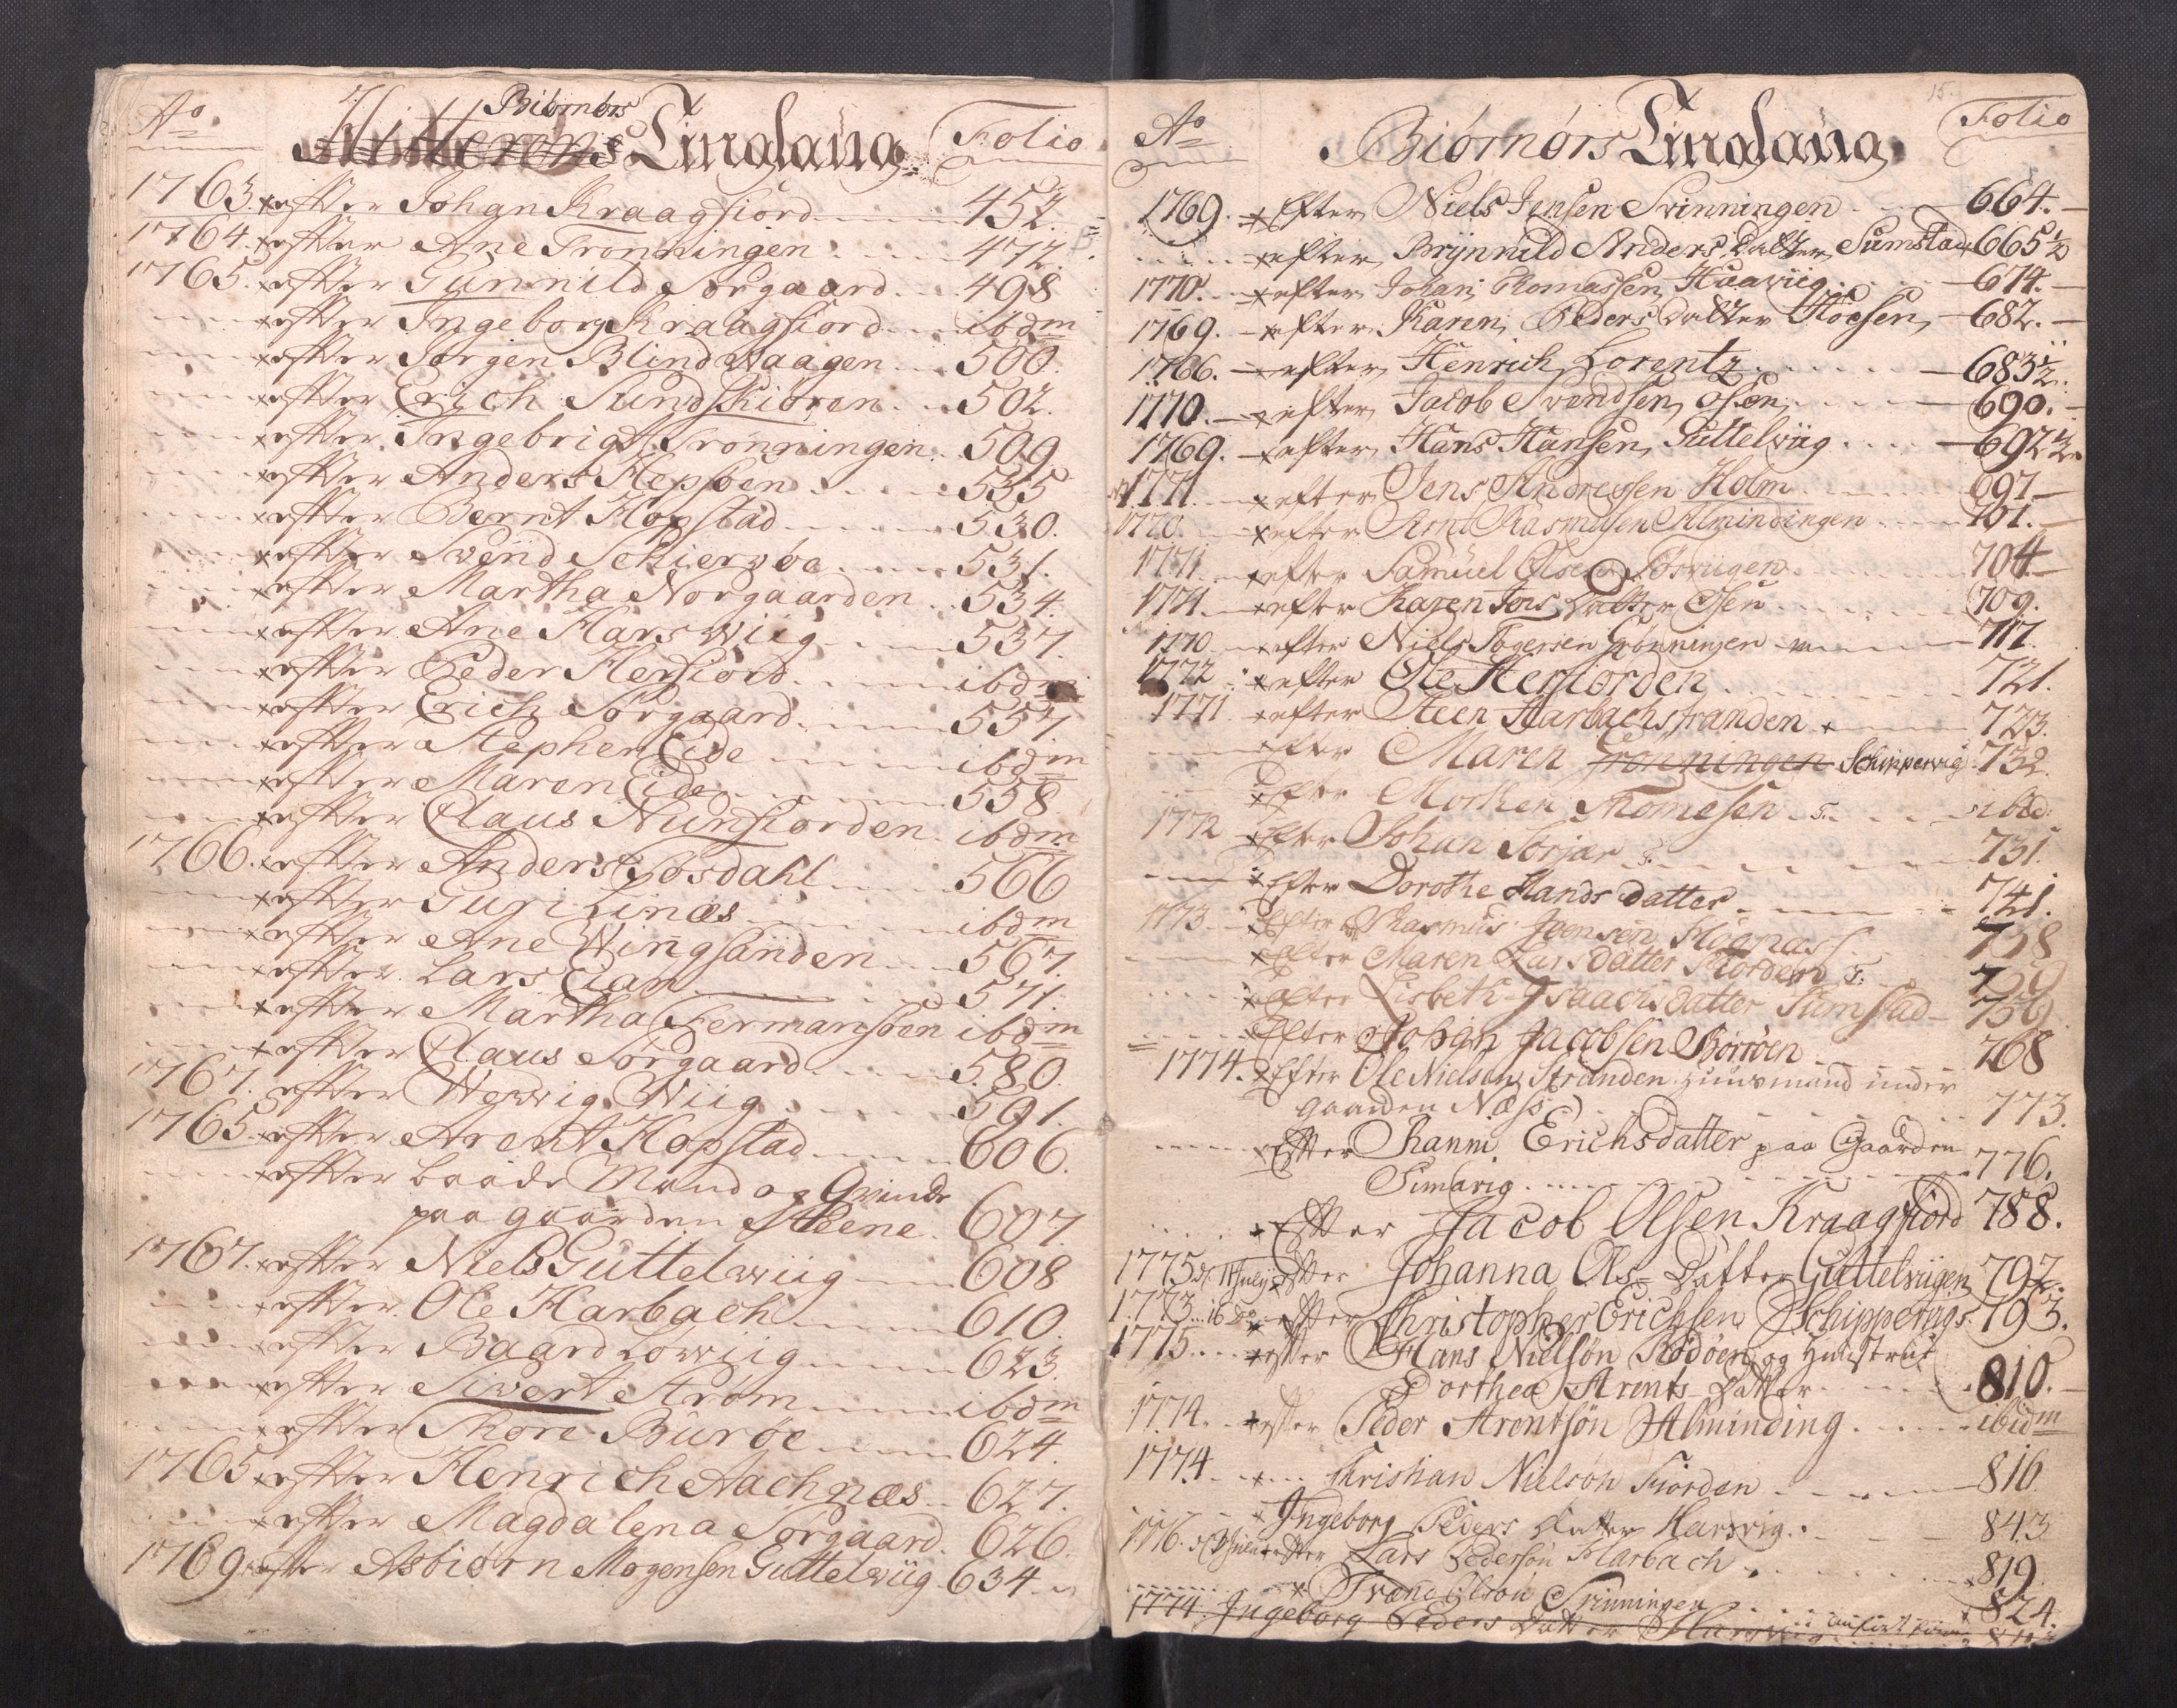 Ao Biørnørs Tinglaug Folio
1763. efter Johan Kraagfiord 452.
1764. efter Ane Trønningen 472.
1765. efter Gunnild Sørgaard 498
efter Ingeborg Kraagfiord ibdm
efter Jørgen Blindwaagen 500.
efter Erich Sundskiøren 502.
efter Ingebrigt Trønningen 509
efter Anders Hepsøen 535
efter Bernt Hopstad 530.
efter Svend Schiervøe 531.
efter Martha Norgaarden 534.
efter Ane Harswiig 537.
efter Peder Herfiord ibdm
efter Erich Sørgaard 557
efter Stephen Eide ibdm
efter Maren Eide 558
efter Claus Nunfiorden ibdm
1766. efter Anders Fosdahl 566
efter Guri Linæs ibdm
efter Ane Wingsanden 567.
efter Lars Eian 571.
efter Martha Fermansøen ibdm
efter Claus Sørgaard 580.
1767. efter Werwig Wiig 591.
1765 efter Arent Hopstad 606.
efter baade Mand og Qvinde
paa gaarden Steene 607.
1767. efter Niels Guttelwiig 608
efter Ole Harbach 610.
efter Baard Lowiig 623.
efter Sivert Strøm ibdm
efter Thore Burøe 624.
1765 efter Henrich Aachnæs 627.
efter Magdalena Sørgaard 626.
1769 efter Asbiørn Mogensen Guttelwiig 634
15.
Ao Biørnørs Tinglaug Folio
1769. Efter Niels Jensen Svinningen 664.
efter Brynnild Anders Datter Sumstad 665½
1770. efter Johan Thomassen Haawiig 674.
1769. efter Karen Peders Datter Hoesen 682.
1766. efter Henrich Lorentz 683½.
1770. efter Jacob Svendsen Osen 690.
1769. efter Hans Hansen Guttelwiig 692½.
1771. efter Jens Andressen Holm 697
1770. efter Arnt Rasmusen Almindingen 701.
1771 efter Samuel Olsen 704
1771. efter Karen Jens Datter Osen 709.
1770 efter Niels Togersen Grønningen 717.
1772 efter Ole Herfiorden 721.
1771 efter Steen Harbachstranden 723.
efter Maren Grønningen Schippervig 732.
Efter Morten Thomesen ibid:
1772 Efter Johan Sørjar 731.
Efter Dorothe Hands datter 741.
1773 Efter Rasmus Joensen 758
Efter Maren Lars datter Fiorden
Efter Lisbeth Isaachs datter Sumstad 756
Efter Johan Jacobsen Børrøen 768
1774. Efter Ole Nielsen Stranden Huusmand under
gaarden Næss 773.
Efter Erichsdatter paa Gaarden
Simavig 776.
Efter Jacob Olsen Kraagfiord 788.
1775 Efter Johanna Ols Datter Guttelviigen 792.
1773 16 do efter Christopher Erichsen Schippervigs 793.
1775 efter Hans Nielsøn Rødøen og Huustrue
Dorthea Arents Datter 810.
1774. efter Peder Arentsøn Alminding ibidm
1774 Christian Nielsøn Fiorden 816.
Ingeborg Peders Datter Harsvig 843
1776. efter Lars Pedersøn Harbach 819
Olsøn Svinningen 824.
1774 Ingeborg Peders Datter Harsviig